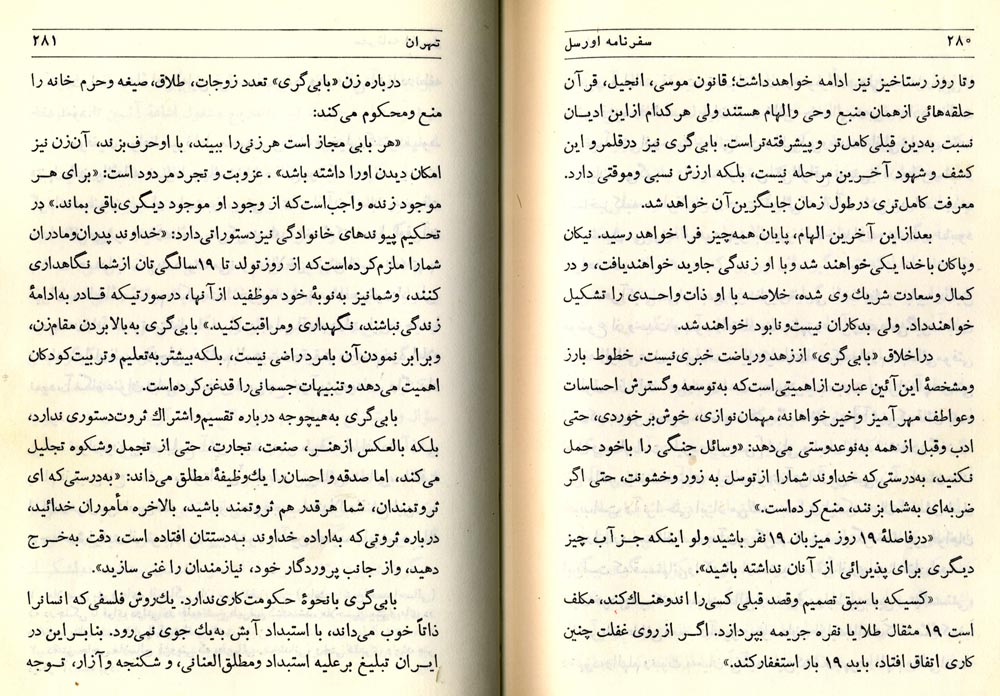 ۲۸۰ سفرنامه اورسل
وتا روز رستاخیز نیز ادامه خواهد داشت؛ قانون موسی، انجیل، قرآن
حلقه‌هائی ازهمان منبع وحی والهام هستند ولی هرکدام ازاین ادیان
نسبت به‌دین قبلی‌کامل‌تر و پیشرفته‌تراست. بابی‌گری نیز درقلمر و این
کشف و شهود آخرین مرحله نیست، بلکه ارزش نسبی وموقتی دارد.
معرفت کامل‌تری درطول زمان جایگزین‌آن خواهد شد.
بعدازاین آخرین الهام، پایان همه‌چیز فرا خواهد رسید. نیکان
وپاکان باخدا یکی‌خواهند شد وبا او زندگی جاوید خواهندیافت، و در
کمال وسعادت شریك وی شده، خلاصه با او ذات‌واحدی را تشکیل
خواهندداد. ولی بدکاران نیست‌ونابود خواهندشد.
دراخلاق «بابی‌گری» اززهد وریاضت خبری‌نیست. خطوط بارز
ومشخصهٔ این‌آئین عبارت ازاهمیتی‌است‌که به‌توسعه وگسترش احساسات
وعواطف مهرآمیز وخیرخواهانه، مهمان‌نوازی، خوش‌برخوردی، حتی
ادب وقبل ازهمه به‌نوعدوستی می‌دهد: «وسائل جنگی را باخود حمل
نکنید، به‌درستی‌که خداوند شمارا ازتوسل به زور وخشونت، حتی اگر
ضربه‌ای به‌شما بزنند، منع‌کرده‌است.»
«درفاصلهٔ ۱۹ روز میزبان ۱۹نفر باشید ولو اینکه جزآب چیز
دیگری برای پذیرائی از آنان نداشته باشید».
«کسیکه با سبق تصمیم وقصد قبلی کسی‌را اندوهناك‌کند، مکلف
است ۱۹ مثقال طلا یا نقره جریمه بپردازد. اگر ازروی غفلت چنین
کاری اتفاق افتاد، باید ۱۹ بار استغفارکند.»
تهران ۲۸۱
درباره زن «بابی‌گری» تعدد زوجات، طلاق، صیغه وحرم خانه را
منع ومحکوم می‌کند:
«هر بابی مجاز است هرزنی‌را ببیند، با اوحرف‌بزند، آن‌زن نیز
امکان دیدن اورا داشته باشد». عزوبت و تجرد مردود است: «برای هر
موجود زنده واجب‌است‌که از وجود او موجود دیگری‌باقی بماند.» در
تحکیم پیوندهای خانوادگی نیزدستوراتی‌دارد: «خداوند پدران‌ومادران
شمارا ملزم‌کرده‌است‌که از روزتولد تا ۱۹سالگی‌تان ازشما نگاهداری
کنند، وشمانیز به‌نوبهٔ خود موظفید ازآنها، درصورتیکه قادر به‌ادامهٔ
زندگی نباشند، نگهداری ومراقبت‌کنید.» بابی‌گری به‌بالابردن مقام‌زن،
وبرابر نمودن‌آن بامرد راضی نیست، بلکه‌بیشتربه‌تعلیم وتربیت‌کودکان
اهمیت می‌دهد وتنبیهات جسمانی را قدغن‌کرده‌است.
بابی‌گری به‌هیچوجه درباره تقسیم‌واشتراك ثروت‌دستوری ندارد،
بلکه بالعکس ازهنر، صنعت، تجارت، حتی از تجمل وشکوه تجلیل
می‌کند، اما صدقه و احسان‌را یك‌وظیفهٔ مطلق می‌داند: «به‌درستی‌که ای
ثروتمندان، شما هرقدر هم ثروتمند باشید، بالاخره مأموران خدائید،
درباره ثروتی‌که به‌اراده خداوند به‌دستتان افتاده است، دقت به‌خرج
دهید، واز جانب پروردگار خود، نیازمندان را غنی سازید».
بابی‌گری بانحوهٔ حکومت‌کاری‌ندارد. یك‌روش فلسفی‌که انسانرا
ذاتاً خوب می‌داند، با استبداد آبش به‌یك جوی نمی‌رود. بنابراین در
ایران تبلیغ برعلیه استبداد ومطلق‌العنانی، و شکنجه وآزار، توجه